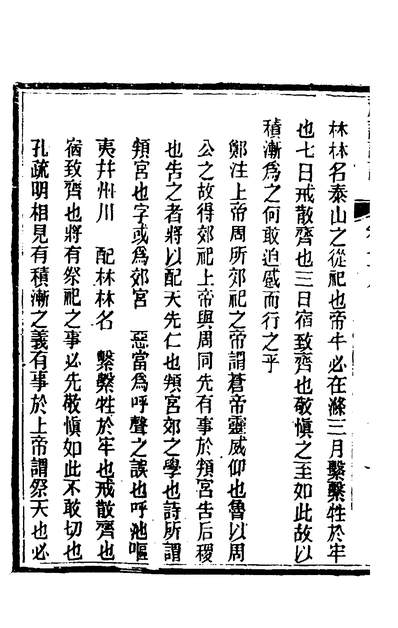 林林名泰山之從祀也帝牛必在滌三月繫繫牲於牢
也七日戒散齊也三日宿致齊也敬愼之至如此故以
積漸爲之何敢迫慼而行之乎
鄭注上帝周所郊祀之帝謂蒼帝靈威仰也魯以周
公之故得郊祀上帝與周同先有事於頖宮吿后稷
也吿之者將以配天先仁也頖宮郊之學也詩所謂
頖宮也字或爲郊宮　惡當爲呼聲之誤也呼池嘔
夷幷州川　配林林名　繫繫牲於牢也戒散齊也
宿致齊也將有祭祀之事必先敬愼如此不敢切也
孔疏明相見有積漸之義有事於上帝謂祭天也必